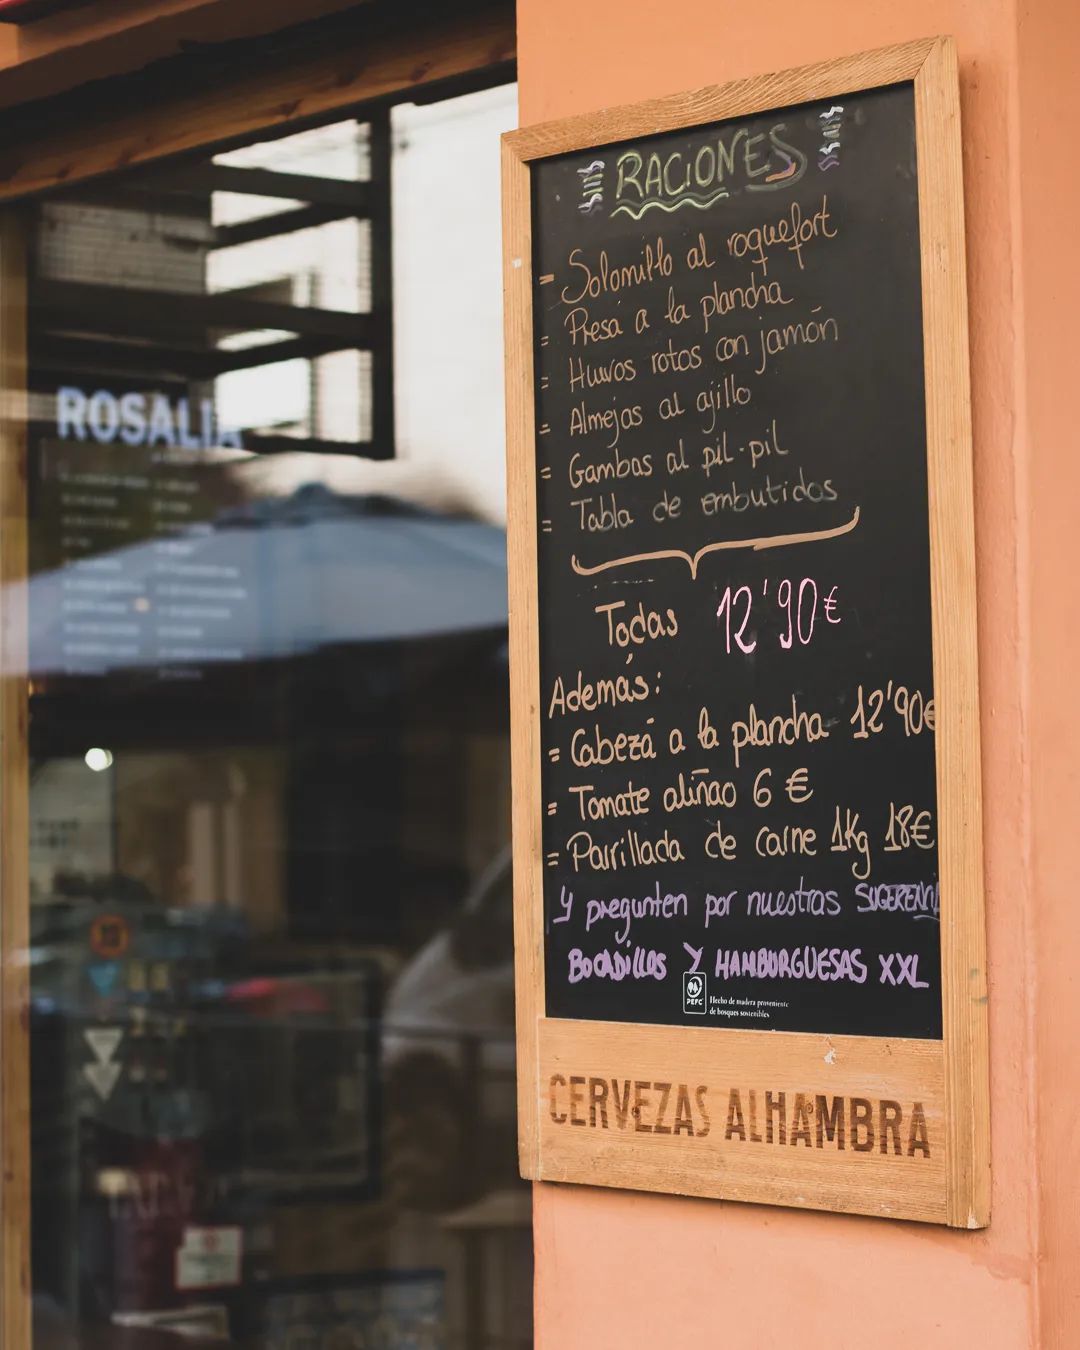 ROSALIA
RACiONES
= Solomillo al roquefort
= Presa a la plancha
= Huevos rotos con jamón
= Almejas al ajillo
= Gambas al pil-pil
= Tabla de embutidos
Todas 12'90€
Además:
= Cabeza a la plancha 12'90€
= Tomate aliñao 6 €
= Parrillada de carne 1Kg 18€
Y pregunten por nuestras
BOCADillos Y HAMBURGUESAS XXL
PEFC
Hecho de madera proveniente
de bosques sostenibles
CERVEZAS ALHAMBRA